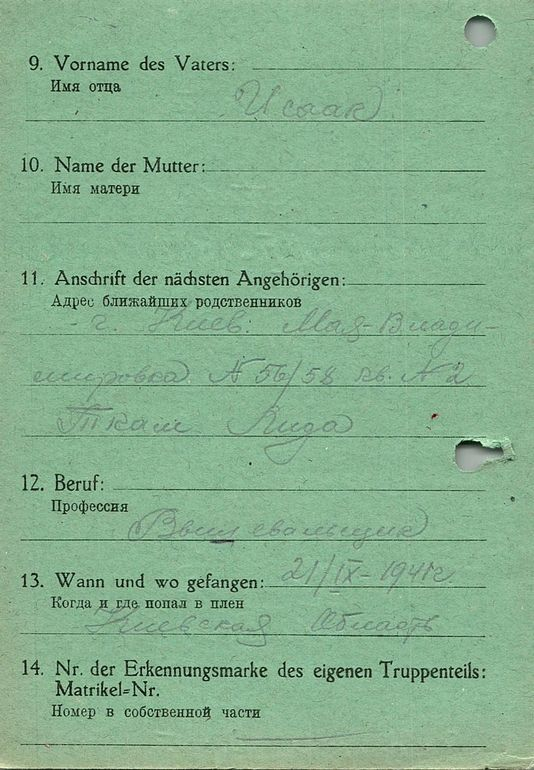 9. Vorname des Vaters:
Имя отца
Исаак
10. Name der Mutter:
Имя матери
11. Anschrift der nächsten Angehörigen:
Адрес ближайших родственников
г. Киев. Мая-Влади-
мировка № 56/58 кв. № 2
Ткач Лида
12. Beruf:
Профессия
13. Wann und wo gefangen: 21/IX-1941г.
Когда и где попал в плен
Киевская Область
14. Nr. der Erkennungsmarke des eigenen Truppenteils:
Matrikel=Nr.
Номер в собственной части